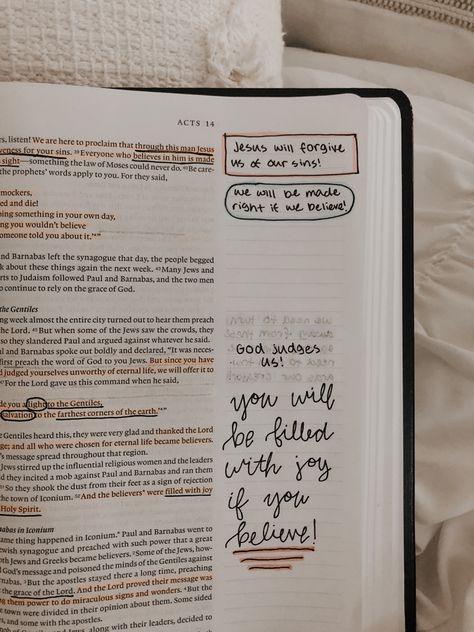 ACTS 14
rs, listen! We are here to proclaim that through this man Jesus
veness for your sins. 39Everyone who believes in him is made
sight—something the law of Moses could never do. 40Be care-
the prophets' words apply to you. For they said,
mockers,
ed and die!
oing something in your own day,
ng you wouldn't believe
omeone told you about it.'*"
nd Barnabas left the synagogue that day, the people begged
k about these things again the next week. 43Many Jews and
erts to Judaism followed Paul and Barnabas, and the two men
o continue to rely on the grace of God.
the Gentiles
ng week almost the entire city turned out to hear them preach
the Lord. 45But when some of the Jews saw the crowds, they
so they slandered Paul and argued against whatever he said.
ul and Barnabas spoke out boldly and declared, "It was neces-
first preach the word of God to you Jews. But since you have
d judged yourselves unworthy of eternal life, we will offer it to
For the Lord gave us this command when he said,
de you a light to the Gentiles,
salvation to the farthest corners of the earth.'*"
Gentiles heard this, they were very glad and thanked the Lord
ge; and all who were chosen for eternal life became believers.
's message spread throughout that region.
Jews stirred up the influential religious women and the leaders
d they incited a mob against Paul and Barnabas and ran them
So they shook the dust from their feet as a sign of rejection
the town of Iconium. 52And the believers* were filled with joy
Holy Spirit.
nabas in Iconium
ame thing happened in Iconium.* Paul and Barnabas went to
ewish synagogue and preached with such power that a great
oth Jews and Greeks became believers. 2Some of the Jews, how-
God's message and poisoned the minds of the Gentiles against
nabas. 3But the apostles stayed there a long time, preaching
the grace of the Lord. And the Lord proved their message was
ng them power to do miraculous signs and wonders. 4But the
e town were divided in their opinion about them. Some sided
s, and some with the apostles.
of Gentiles and Jews, along with their leaders, decided to
Jesus will forgive
us of our sins!
we will be made
right if we believe!
God judges
us!
you will
be filled
with joy
if you
believe!